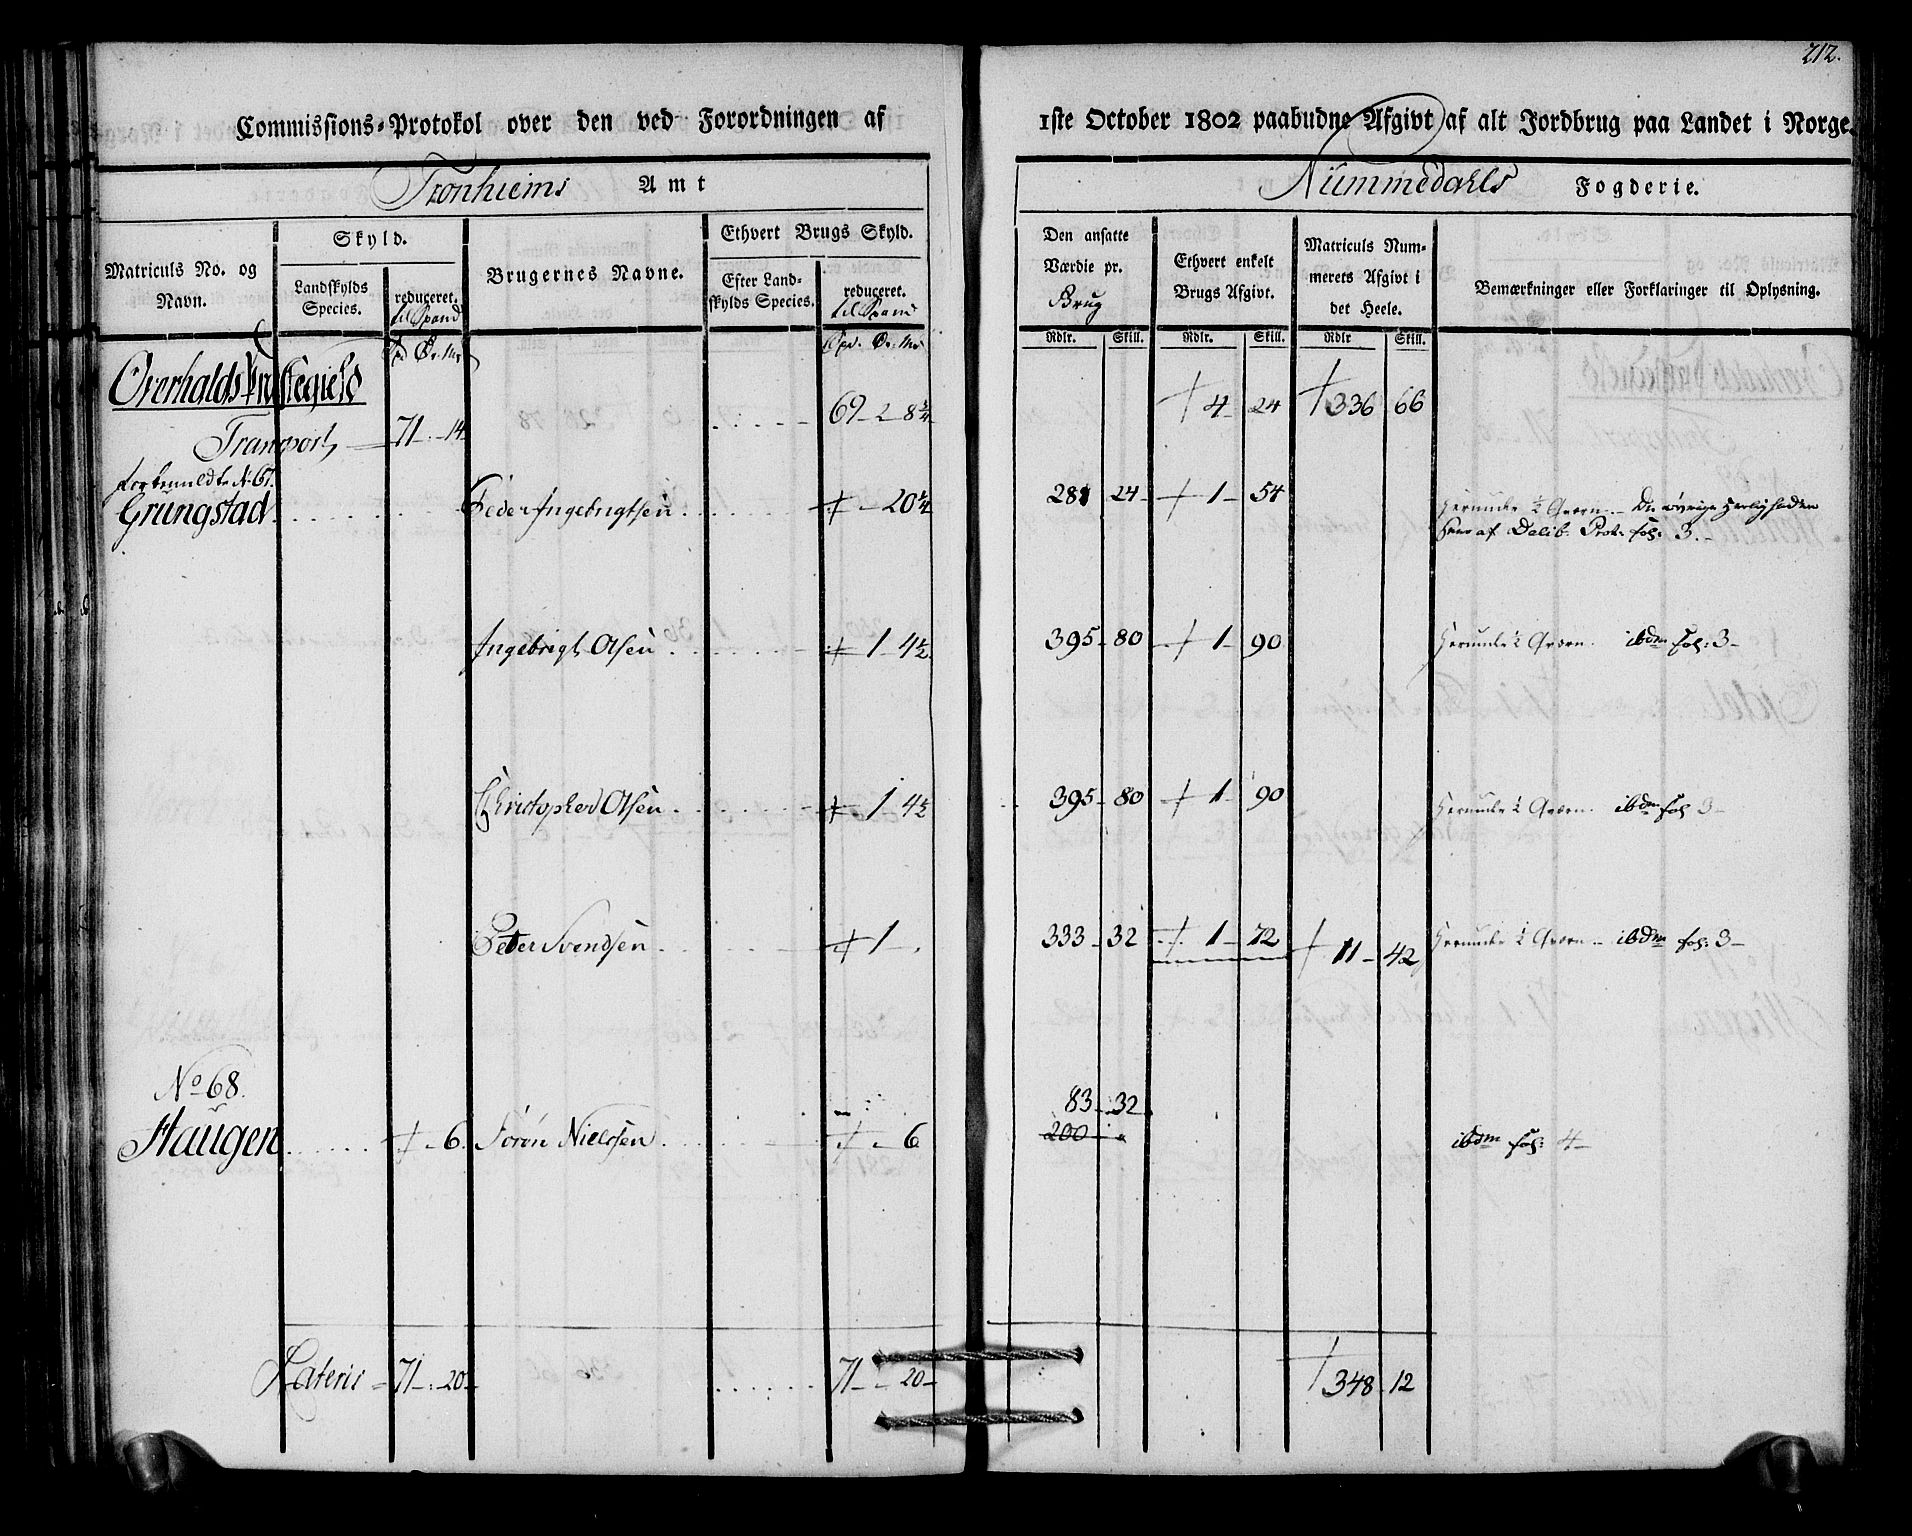 212.
Commissions-Protokol over den ved Forordningen af 1ste October 1802 paabudne Afgivt af alt Jordbrug paa Landet i Norge.
Tronhiems Amt
Nummedahls Fogderie.
Matriculs No. og Navn.
Skyld.
Landskylds Species.
reduceret. til Spand
Brugernes Navne.
Ethvert Brugs Skyld.
Efter Landskylds Species.
reduceret. til Spand
Den ansatte Værdie pr. Brug
Ethvert enkelt Brugs Afgivt.
Matriculs Nummerets Afgivt i det Heele.
Bemærkninger eller Forklaringer til Oplysning.
Rdlr. Skill. Rdlr. Skill. Rdlr Skill.
Overhalds Præstegield
Transport 71 . - 14 69 - 2 - 8 3/4 4 - 24 336 66
forbemeldte N. 67.
Grungstad Peder Ingebrigtsen 20 1/4 281 24 1 - 54 Herunder 1/2 Qværn. - De øvrige Herligheder
sees af Delib. Prot. fol: 3. -
Ingebrigt Olsen 1 - 4 1/2 395 - 80 1 - 90 Herunder 1/2 Qværn. ibdm fol: 3 -
Christopher Olsen 1 4 1/2 395 - 80 1 - 90 Herunder 1/2 Qværn. ibdm fol 3 -
Peter Svendsen 1 - 333 - 32 1 - 72 11 - 42 Herunder 1/2 Qværn - ibdm fol: 3 -
No 68.
83 - 32
Haugen - 6. Sørøn Nielssen - 6 200 - ibdm fol: 4 -
Lateris = 71 - : 20 - 71 - - 20 - 348 - 12